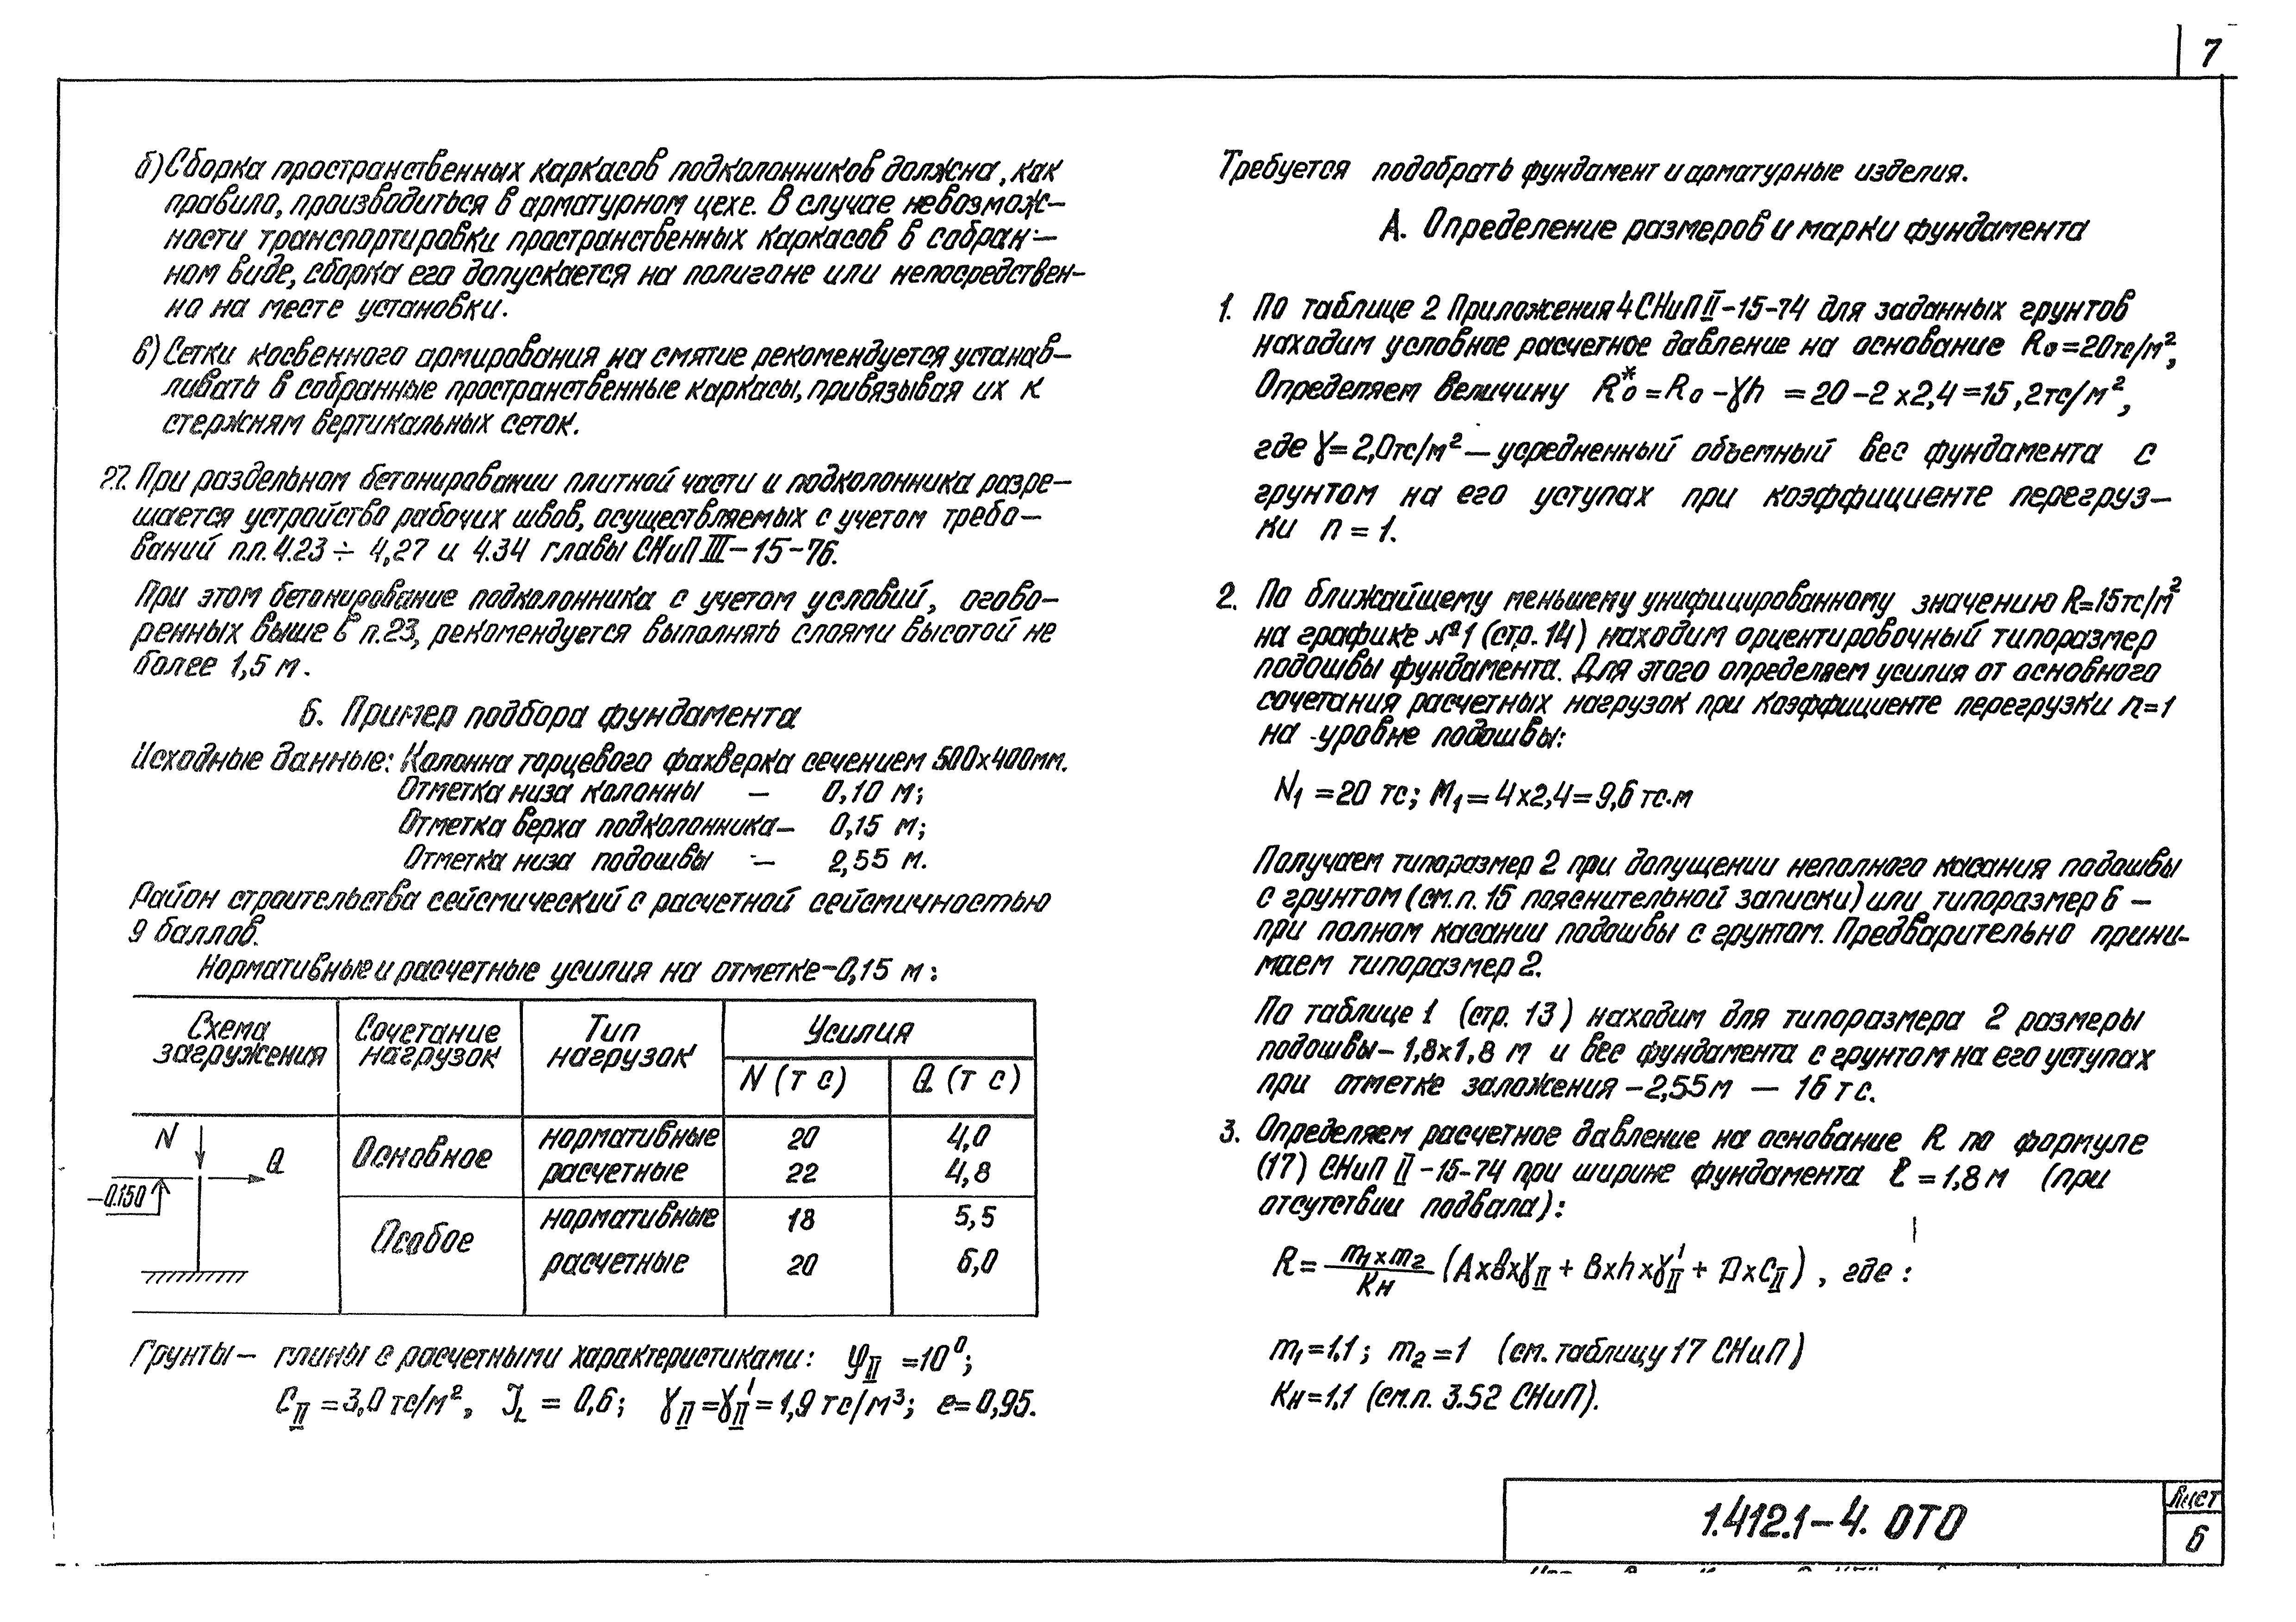 7
б) Сборка пространственных каркасов подколонников должна, как
правило, производиться в арматурном цехе. В случае невозмож-
ности транспортировки пространственных каркасов в собран-
ном виде, сборка его допускается на полигоне или непосредствен-
но на месте установки.
в) Сетки косвенного армирования на смятие рекомендуется устанав-
ливать в собранные пространственные каркасы, привязывая их к
стержням вертикальных сеток.
27. При раздельном бетонировании плитной части и подколонника разре-
шается устройство рабочих швов, осуществляемых с учетом требо-
ваний п.п. 4.23 ÷ 4,27 и 4.34 главы СНиП III-15-76.
При этом бетонирование подколонника с учетом условий, огово-
ренных выше в п.23, рекомендуется выполнять слоями высотой не
более 1,5 м.
6. Пример подбора фундамента
Исходные данные: Колонна торцевого фахверка сечением 500х400мм.
Отметка низа колонны — 0,10 м;
Отметка верха подколонника— 0,15 м;
Отметка низа подошвы — 2,55 м.
Район строительства сейсмический с расчетной сейсмичностью
9 баллов.
Нормативные и расчетные усилия на отметке-0,15 м:
Схема загружения
Сочетание нагрузок
Тип нагрузок
Усилия
N (т с) Q (т с)
N
Q
-0.150
Основное
нормативные 20 4,0
расчетные 22 4,8
Особое
нормативные 18 5,5
расчетные 20 6,0
Грунты— глины с расчетными характеристиками: φII =10⁰;
CII =3,0 тс/м², JL = 0,6; γII=γ'II=1,9 тс/м³; e=0,95.
Требуется подобрать фундамент и арматурные изделия.
А. Определение размеров и марки фундамента
1. По таблице 2 Приложения 4 СНиП II-15-74 для заданных грунтов
находим условное расчетное давление на основание R₀=20тс/м²,
Определяем величину R₀* = R₀ - γh = 20-2х2,4=15,2тс/м²,
где γ=2,0тс/м² — усредненный объемный вес фундамента с
грунтом на его уступах при коэффициенте перегруз-
ки n = 1.
2. По ближайшему меньшему унифицированному значению R=15тс/м²
на графике №1 (стр. 14) находим ориентировочный типоразмер
подошвы фундамента. Для этого определяем усилия от основного
сочетания расчетных нагрузок при коэффициенте перегрузки n=1
на уровне подошвы:
N₁ =20 тс; M₁=4х2,4=9,6 тс.м
Получаем типоразмер 2 при допущении неполного касания подошвы
с грунтом (см.п. 15 пояснительной записки) или типоразмер 6 —
при полном касании подошвы с грунтом. Предварительно прини-
маем типоразмер 2.
По таблице 1 (стр. 13) находим для типоразмера 2 размеры
подошвы- 1,8х1,8 м и вес фундамента с грунтом на его уступах
при отметке заложения -2,55м — 16 тс.
3. Определяем расчетное давление на основание R по формуле
(17) СНиП II-15-74 при ширине фундамента ℓ = 1,8 м (при
отсутствии подвала):
R = m₁хm₂/Kн (AхвхγII + Bхhхγ'II + DхCII), где:
m₁=1,1; m₂=1 (см. таблицу 17 СНиП)
Kн=1,1 (см.п. 3.52 СНиП).
1.412.1-4. ОТО
Лист
6